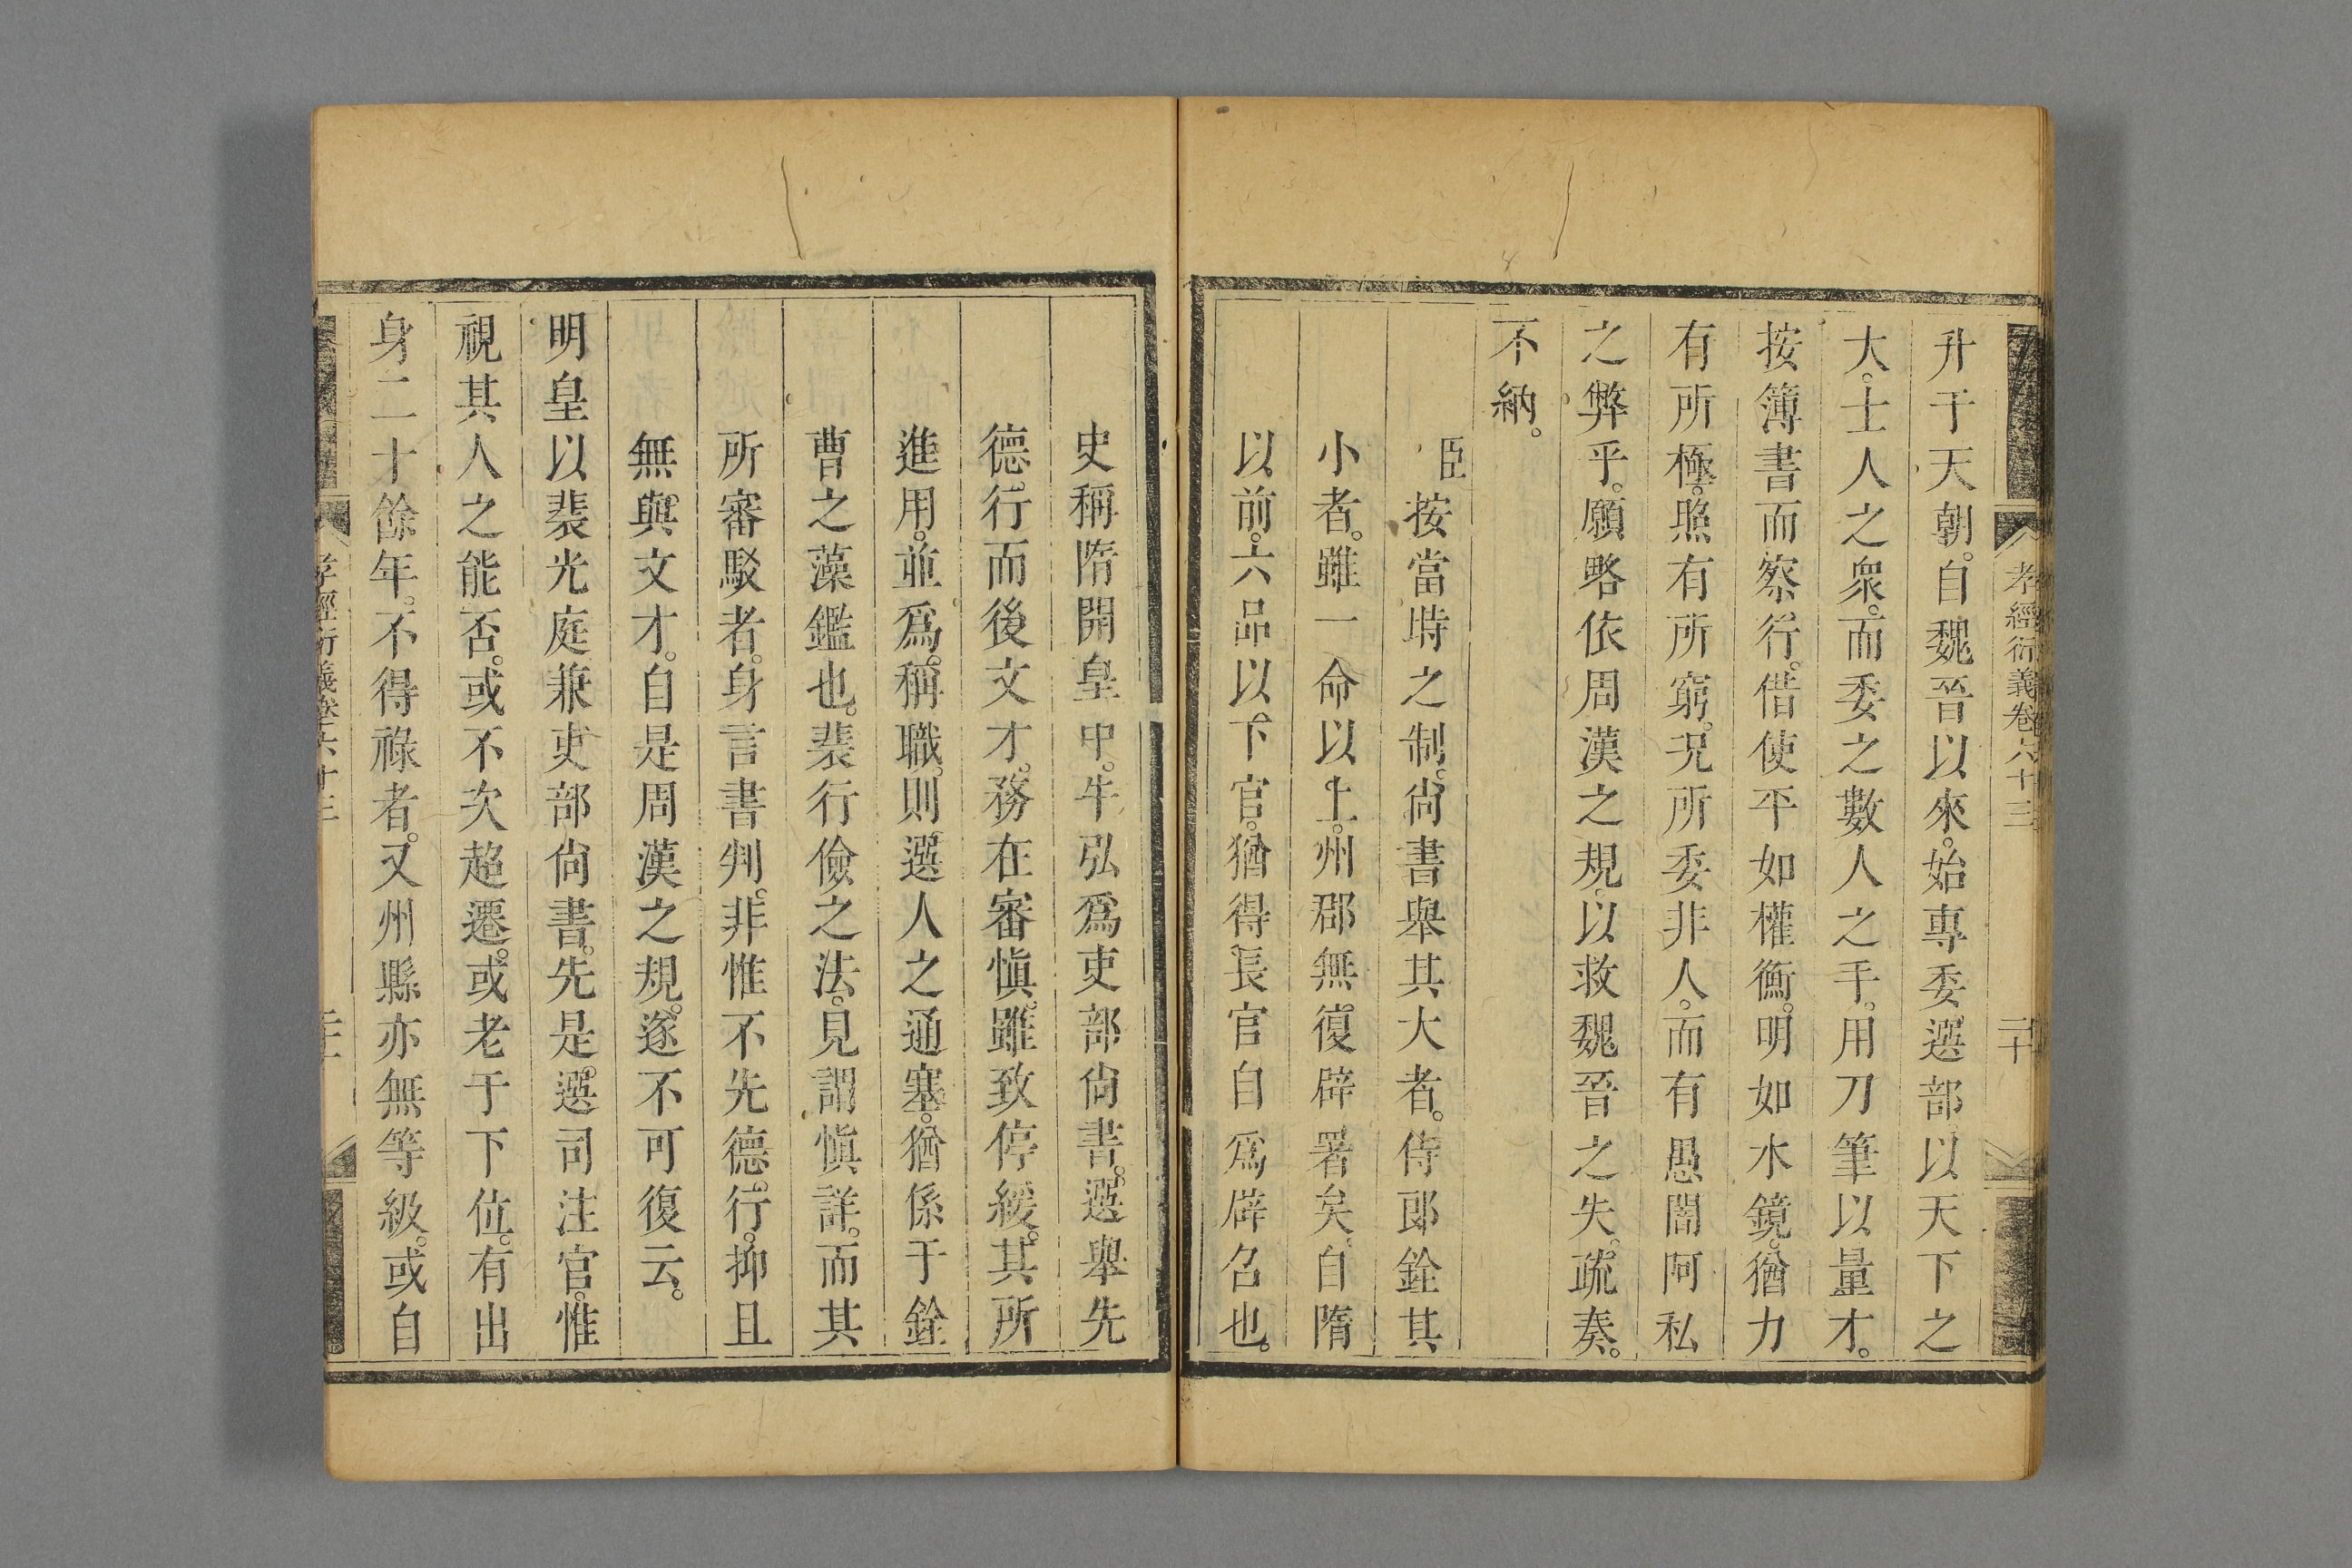 孝經衍義卷六十三 二十
升于天朝。自魏晉以來。始專委選部。以天下之
大。士人之衆。而委之數人之手。用刀筆以量才。
按簿書而察行。借使平如權衡。明如水鏡。猶力
有所極。照有所窮。況所委非人。而有愚闇阿私
之弊乎。願略依周漢之規。以救魏晉之失。疏奏。
不納。
臣按當時之制。尙書舉其大者。侍郎銓其
小者。雖一命以上。州郡無復辟署矣。自隋
以前。六品以下官。猶得長官自爲辟名也。
史稱隋開皇中。牛弘爲吏部尙書。選舉先
德行而後文才。務在審愼。雖致停緩。其所
進用。並爲稱職。則選人之通塞。猶係于銓
曹之藻鑑也。裴行儉之法。見謂愼詳。而其
所審駁者。身言書判。非惟不先德行。抑且
無與文才。自是周漢之規。遂不可復云。
明皇以裴光庭兼吏部尙書。先是。選司注官。惟
視其人之能否。或不次超遷。或老于下位。有出
身二十餘年。不得祿者。又州縣亦無等級。或自
孝經衍義卷六十三